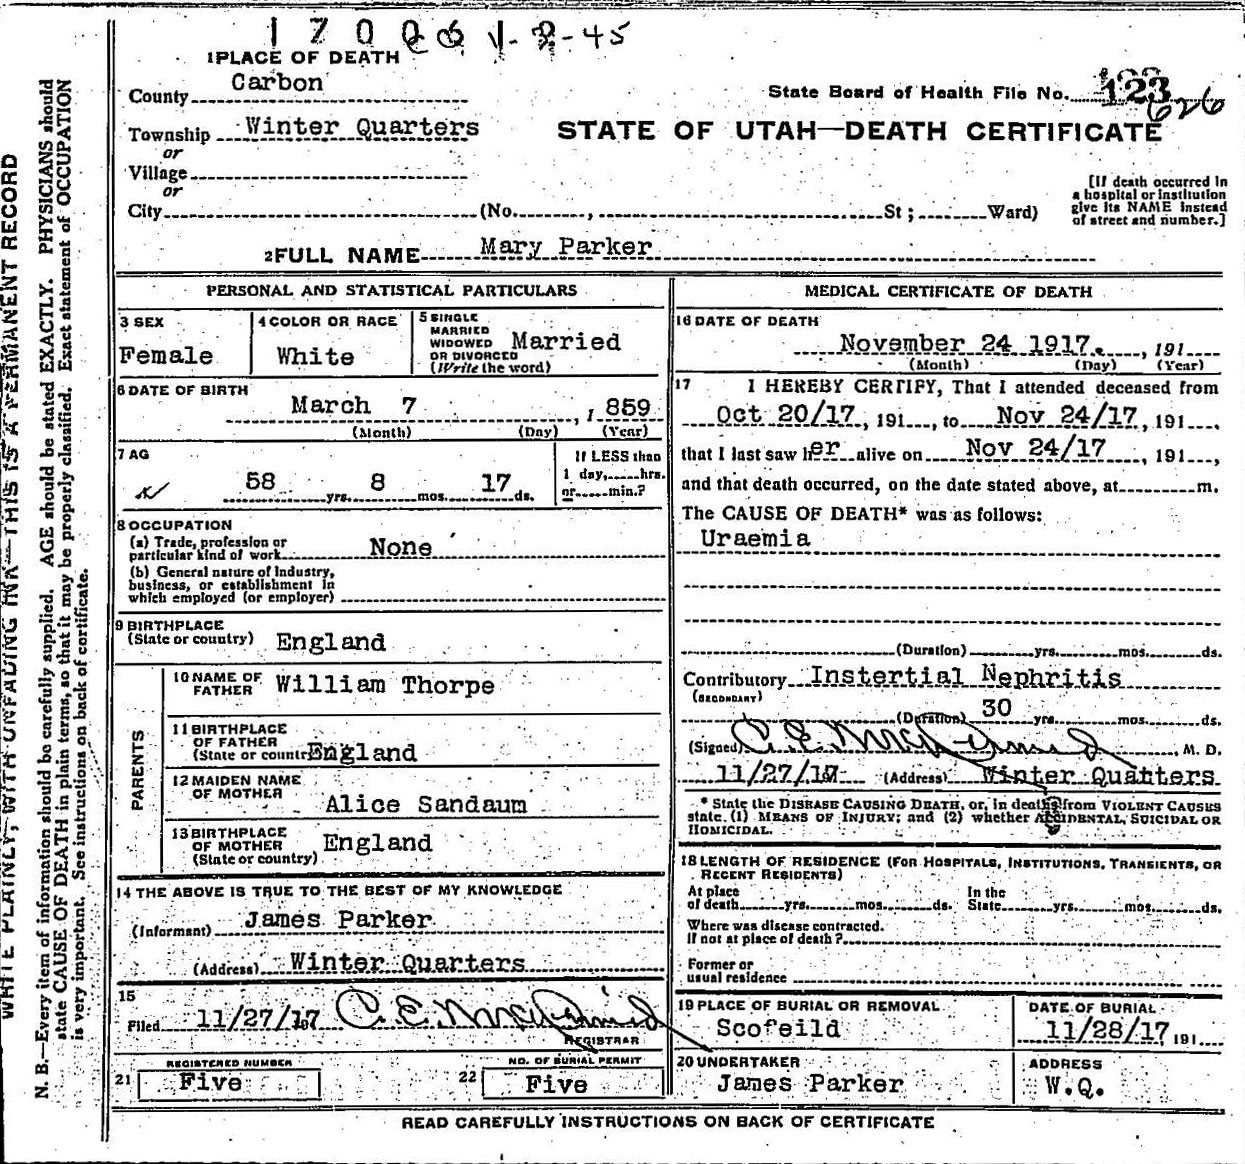 1700
1-2-45
1 PLACE OF DEATH
County Carbon
State Board of Health File No. 123
626
Township Winter Quarters
STATE OF UTAH—DEATH CERTIFICATE
or
Village
or
City (No. , St; Ward)
[If death occurred in
a hospital or institution
give its NAME instead
of street and number.]
2 FULL NAME Mary Parker
PERSONAL AND STATISTICAL PARTICULARS
3 SEX
Female
4 COLOR OR RACE
White
5 SINGLE
MARRIED
WIDOWED
OR DIVORCED
(Write the word)
Married
6 DATE OF BIRTH
March 7 , 1 859
(Month) (Day) (Year)
7 AG
58 yrs. 8 mos. 17 ds.
If LESS than
1 day, hrs.
or min.?
8 OCCUPATION
(a) Trade, profession or
particular kind of work None
(b) General nature of Industry,
business, or establishment in
which employed (or employer)
9 BIRTHPLACE
(State or country) England
PARENTS
10 NAME OF
FATHER William Thorpe
11 BIRTHPLACE
OF FATHER
(State or countr England
12 MAIDEN NAME
OF MOTHER
Alice Sandaum
13 BIRTHPLACE
OF MOTHER
(State or country) England
14 THE ABOVE IS TRUE TO THE BEST OF MY KNOWLEDGE
(Informant) James Parker
(Address) Winter Quarters
15
Filed 11/27/17
REGISTRAR
REGISTERED NUMBER
21 Five
NO. OF BURIAL PERMIT
22 Five
MEDICAL CERTIFICATE OF DEATH
16 DATE OF DEATH
November 24 1917. , 191
(Month) (Day) (Year)
17 I HEREBY CERTIFY, That I attended deceased from
Oct 20/17, 191 , to Nov 24/17, 191 ,
that I last saw her alive on Nov 24/17 , 191 ,
and that death occurred, on the date stated above, at m.
The CAUSE OF DEATH* was as follows:
Uraemia
(Duration) yrs. mos. ds.
Contributory Instertial Nephritis
(SECONDARY)
(Duration) 30 yrs. mos. ds.
(Signed) M. D.
11/27/17 (Address) Winter Quarters
* State the DISEASE CAUSING DEATH, or, in deaths from VIOLENT CAUSES
state (1) MEANS OF INJURY; and (2) whether ACCIDENTAL, SUICIDAL OR
HOMICIDAL.
18 LENGTH OF RESIDENCE (FOR HOSPITALS, INSTITUTIONS, TRANSIENTS, OR
RECENT RESIDENTS)
At place
of death yrs. mos. ds.
In the
State yrs. mos. ds.
Where was disease contracted.
If not at place of death?
Former or
usual residence
19 PLACE OF BURIAL OR REMOVAL
Scofeild
DATE OF BURIAL
11/28/17 191
20 UNDERTAKER
James Parker
ADDRESS
W.Q.
READ CAREFULLY INSTRUCTIONS ON BACK OF CERTIFICATE
WRITE PLAINLY, WITH UNFADING INK—THIS IS A PERMANENT RECORD
N. B.—Every item of information should be carefully supplied. AGE should be stated EXACTLY. PHYSICIANS should
state CAUSE OF DEATH in plain terms, so that it may be properly classified. Exact statement of OCCUPATION
is very important. See instructions on back of certificate.